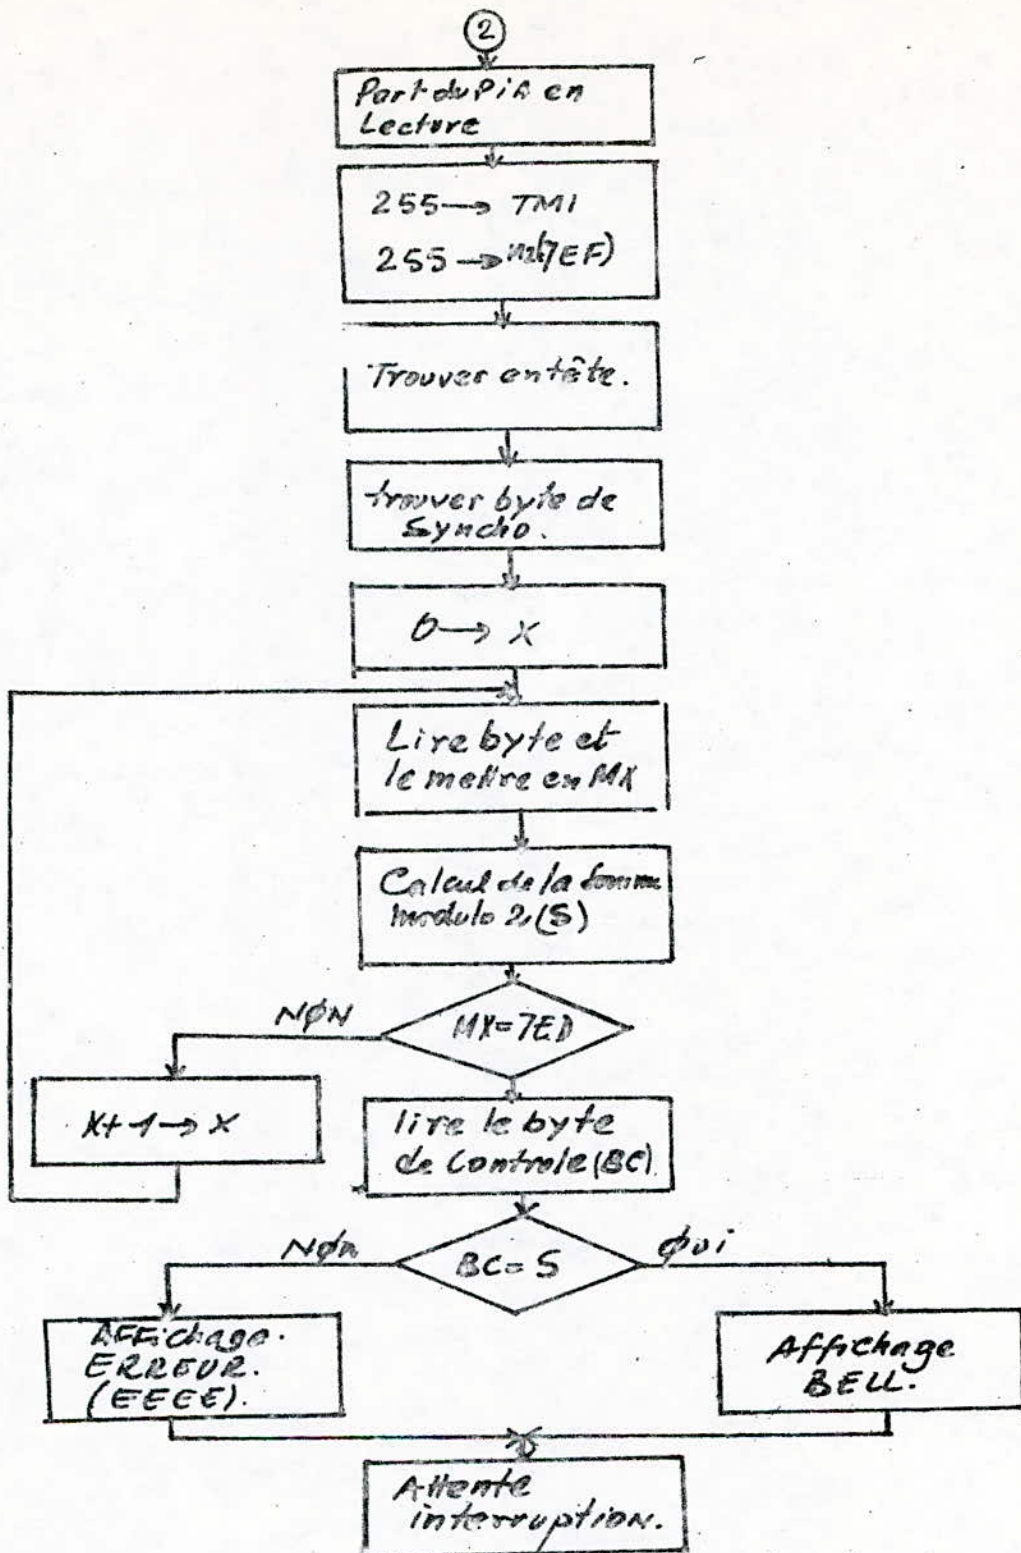 2
Port du PiA en
Lecture
255 → TM1
255 → (7EF)
Trouver entête.
trouver byte de
Syncho.
0 → X
Lire byte et
le mettre en MX
Calcul de la Somme
modulo 2 (S)
NØN
MX=7ED
X+1 → X
lire le byte
de Controle (BC).
NØn
BC=S
Øui
AFFichage.
ERREUR.
(EEEE).
Affichage
BELL.
Attente
interruption.